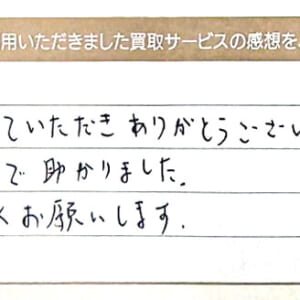 用いただきました買取サービスの感想を
ていただき ありがとうござい
で 助かりました.
お願いします.